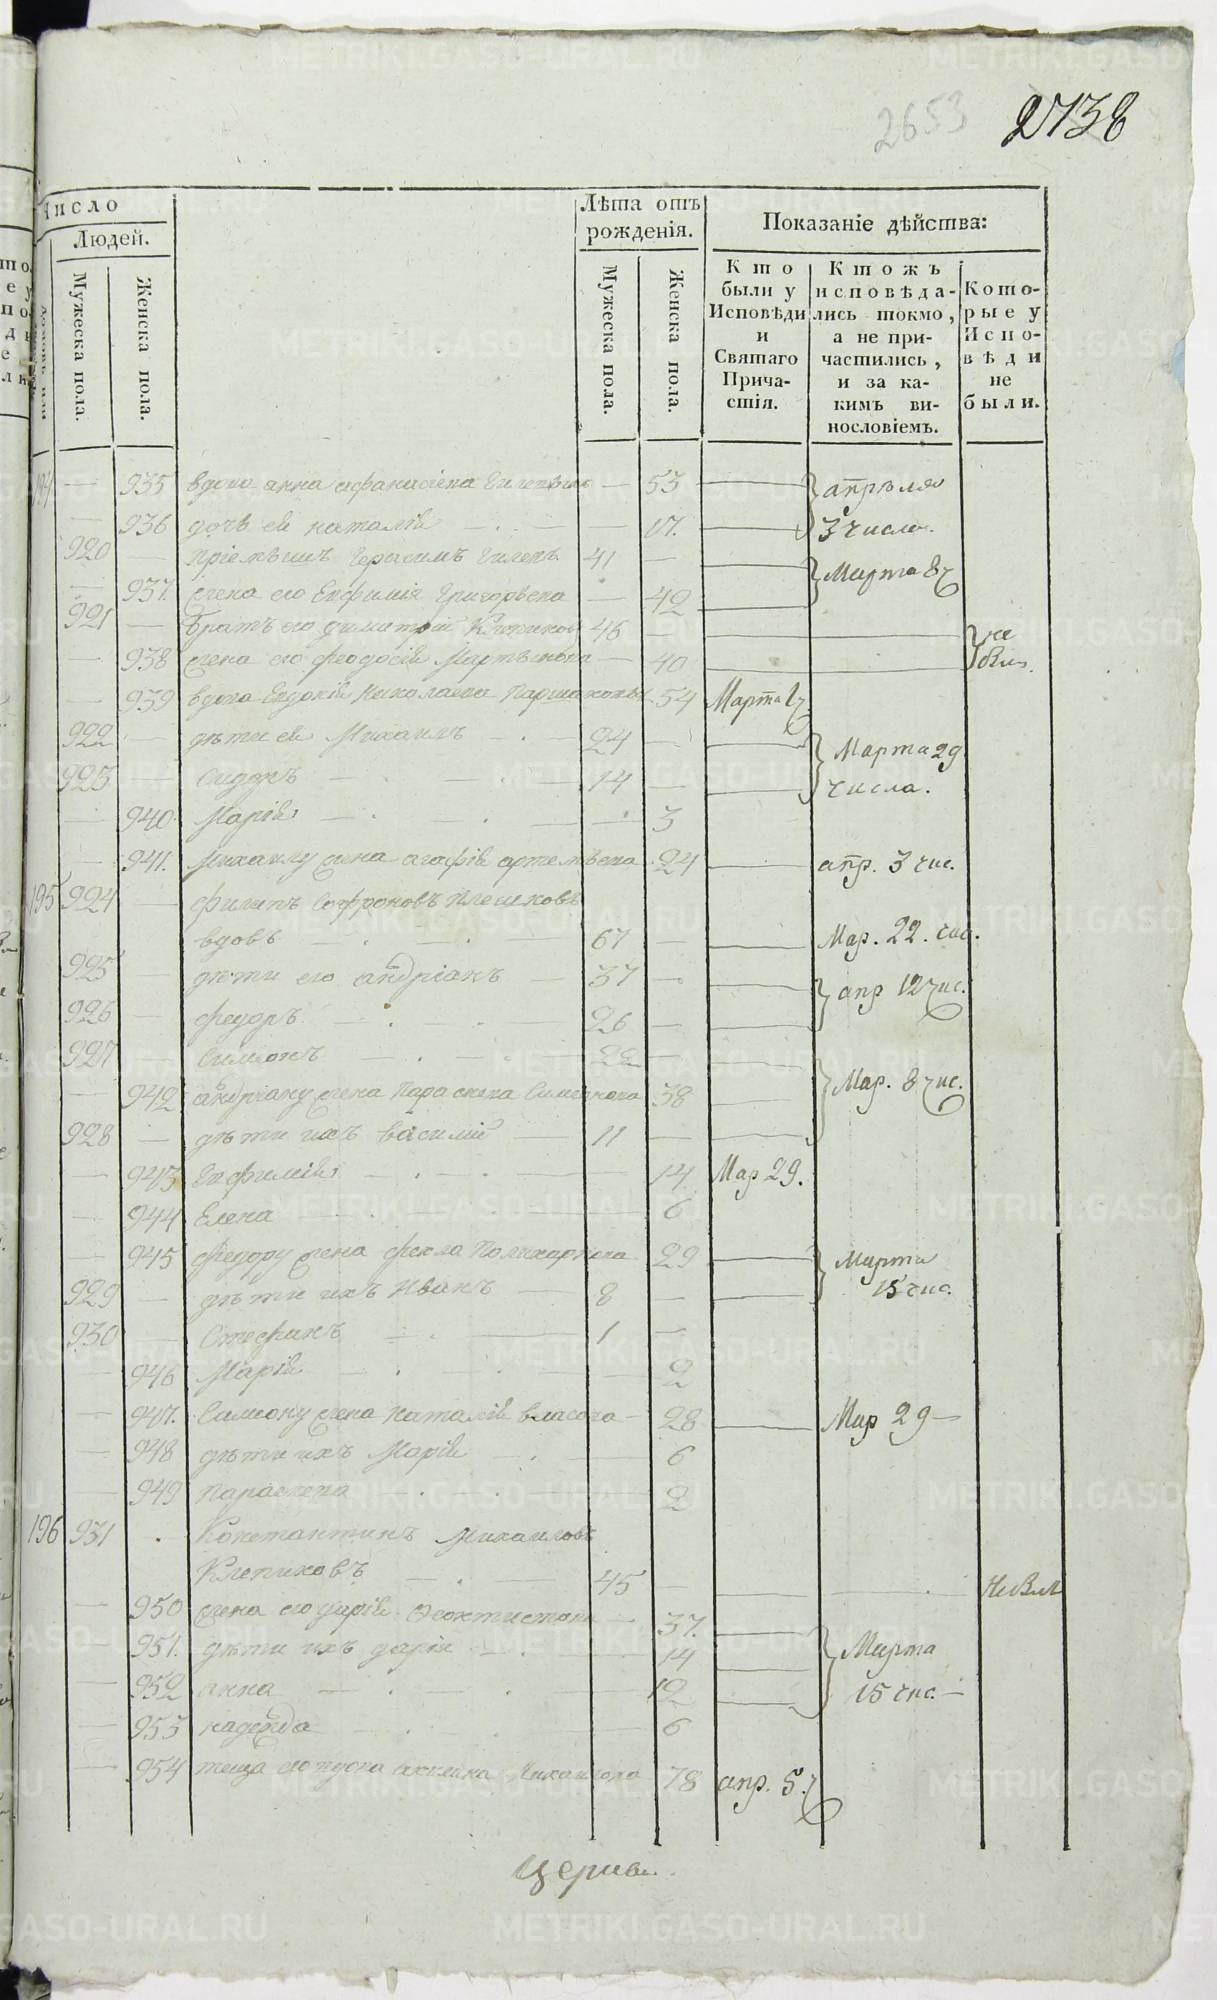 2653 2738
Число
Людей.
Мужеска пола.
Женска пола.
Лѣта отъ
рожденія.
Мужеска пола.
Женска пола.
Показаніе дѣйства:
Кто
были у
Исповѣди
и
Святаго
Прича-
стія.
Ктожъ
исповѣда-
лись токмо,
а не при-
частились,
и за ка-
кимъ ви-
нословіемъ.
Кото-
рые у
Испо-
вѣди
не
были.
935 вдова анна афанасіева 53 апрѣля
936 дочь ея наталія 17. 3 числа.
920 пріемышъ Герасимъ 41 Марта 8
937. жена его Евфимія Григорьева 42
921 братъ его Димитрій Клепиковъ 46 не
938 жена его феодосія Мартынова 40
939 вдова Евдокія Николаева 54 Марта
922 дѣти ея Михаилъ 24 Марта 29
923 Сидоръ 14 числа.
940 Марія 3
941. Михаилу жена агафія артемьева 24 апр. 3 чис.
195 924 Филипъ Софроновъ Плешковъ
вдовъ 67 Мар. 22. чис.
925 дѣти его андріанъ 37 апр 12 чис.
926 федоръ 26
927 Симионъ 22
942 андріану жена Параскева Симионова 38 Мар. 8 чис.
928 дѣти ихъ василій 11
943 Евфимія 14 Мар 29.
944 Елена 6
945 федору жена фекла Поликарпова 29 Марта
929 дѣти ихъ Иванъ 8 15 чис.
930 Стефанъ 1
946 Марія 2
947. Симиону жена наталія власова 28 Мар 29
948 дѣти ихъ Марія 6
949 параскева 2
196 931 Константинъ Михаиловъ
Клепиковъ 45
950 жена его дарія Феоктистова 37.
951. дѣти ихъ дарія 14 Марта
952 анна 12 15 чис.
953 надежда 6
954 теща его вдова акилина 78 апр. 5.
METRIKI.GASO-URAL.RU